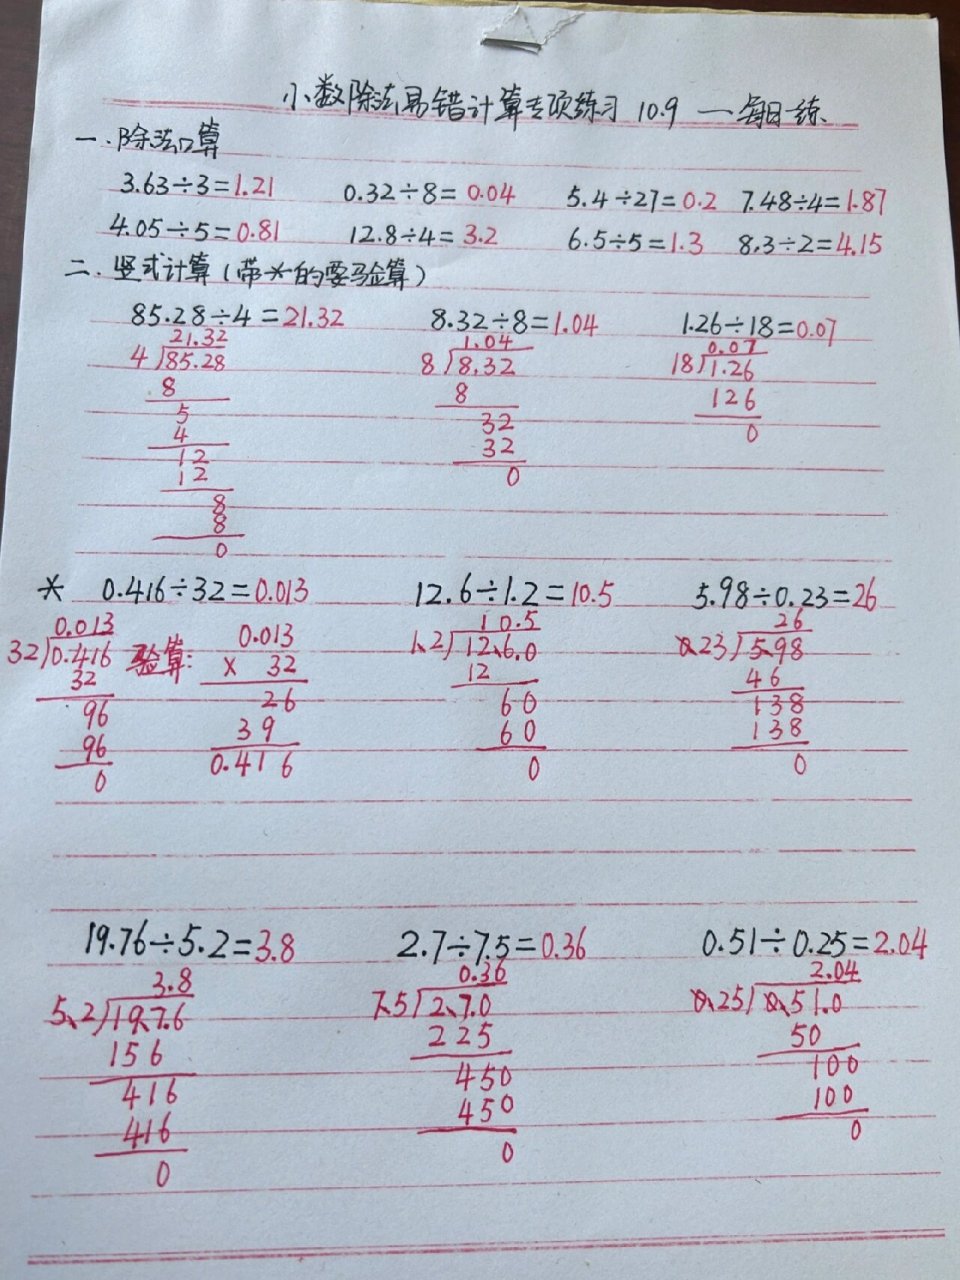 小数除法易错计算专项练习 10.9 一每日一练
一.除法口算
3.63÷3=1.21 0.32÷8=0.04 5.4÷27=0.2 7.48÷4=1.87
4.05÷5=0.81 12.8÷4=3.2 6.5÷5=1.3 8.3÷2=4.15
二.竖式计算(带*的要验算)
85.28÷4=21.32 8.32÷8=1.04 1.26÷18=0.07
21.32 1.04 0.07
4 85.28 8 8.32 18 1.26
8 8 126
5 32 0
4 32
12 0
12
8
8
0
* 0.416÷32=0.013 12.6÷1.2=10.5 5.98÷0.23=26
0.013 0.013 10.5 26
32 0.416 验算: × 32 1.2 12.6.0 0.23 5.98
32 26 12 46
96 39 60 138
96 0.416 60 138
0 0 0
19.76÷5.2=3.8 2.7÷7.5=0.36 0.51÷0.25=2.04
3.8 0.36 2.04
5.2 19.7.6 7.5 2.7.0 0.25 0.51.0
156 225 50
416 450 100
416 450 100
0 0 0